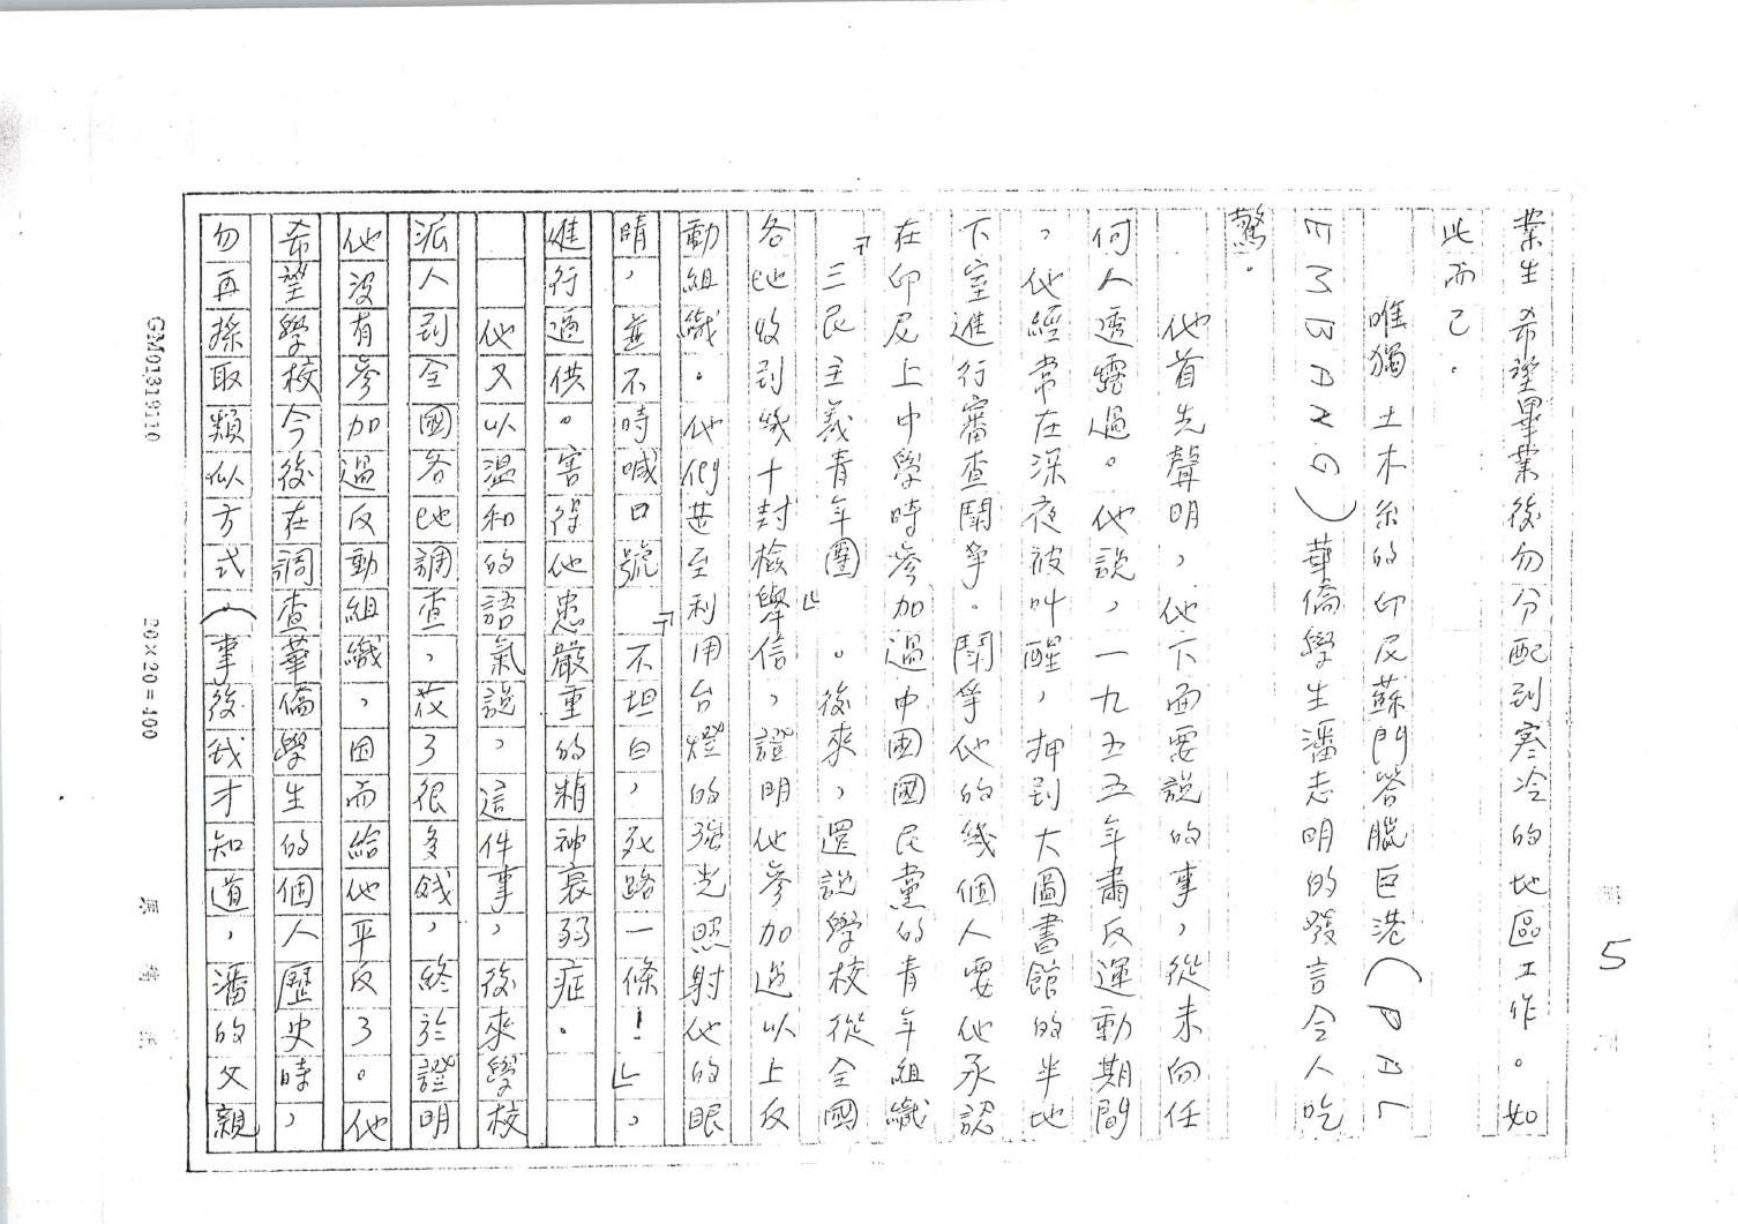 5
業生希望畢業後勿分配到寒冷的地區工作。如
此而已。
唯獨土木系的印尼蘇門答臘巨港(PAL
EMBANG)華僑學生潘志明的發言令人吃
驚。
他首先聲明，他下面要說的事，從未向任
何人透露過。他說，一九五五年肅反運動期間
，他經常在深夜被叫醒，押到大圖書館的半地
下室進行審查鬪爭。鬪爭他的幾個人要他承認
在印尼上中學時參加過中國國民黨的青年組織
『三民主義青年團』。後來，還說學校從全國
各地收到幾十封檢舉信，證明他參加過以上反
動組織。他們甚至利用台燈的強光照射他的眼
睛，並不時喊口號『不坦白，死路一條！』，
進行逼供。害得他患嚴重的精神衰弱症。
他又以溫和的語氣說，這件事，後來學校
派人到全國各地調查，花了很多錢，終於證明
他沒有參加過反動組織，因而給他平反了。他
希望學校今後在調查華僑學生的個人歷史時，
勿再採取類似方式。(事後我才知道，潘的父親
GM01319110
20×20=400